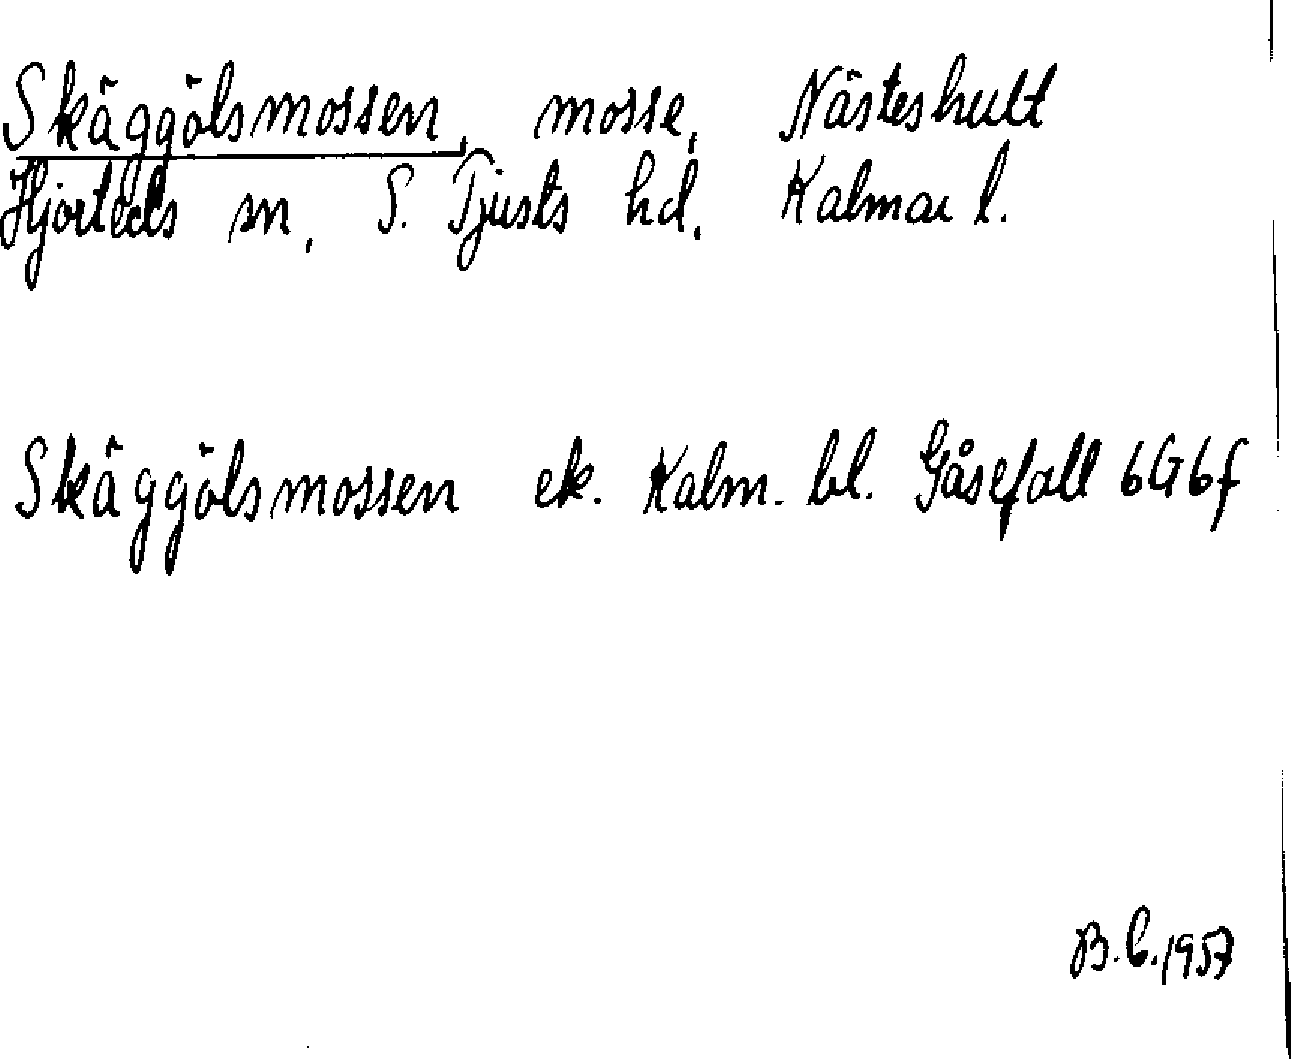 Skäggölsmossen, mosse, Nästeshult
Hjorteds sn, S. Tjusts hd, Kalmar l.
Skäggölsmossen ek. Kalm. bl. Gåsefall 6G6f
B.C. 1957